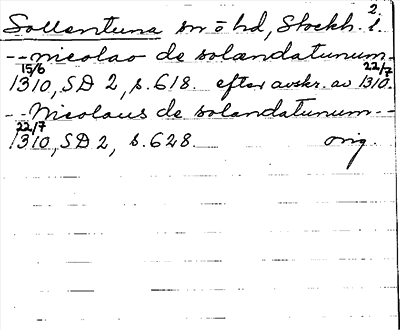 Sollentuna sn o hd, Stockh. l. 2
-- nicolao de solandatunum --
15/6 1310, SD 2, s. 618. efter avskr. av 22/7 1310.
-- Nicolaus de solandatunum --
22/7 1310, SD 2, s. 628. orig.